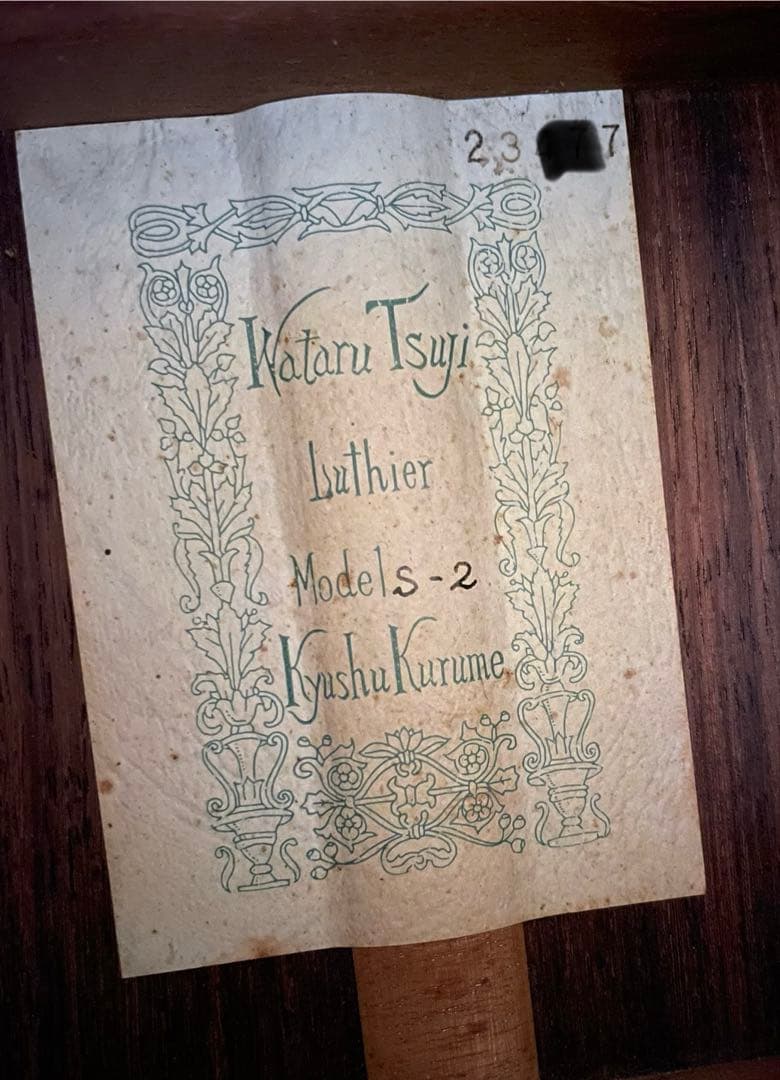 23 77
Wataru Tsuji
Luthier
Model S-2
Kyushu Kurume